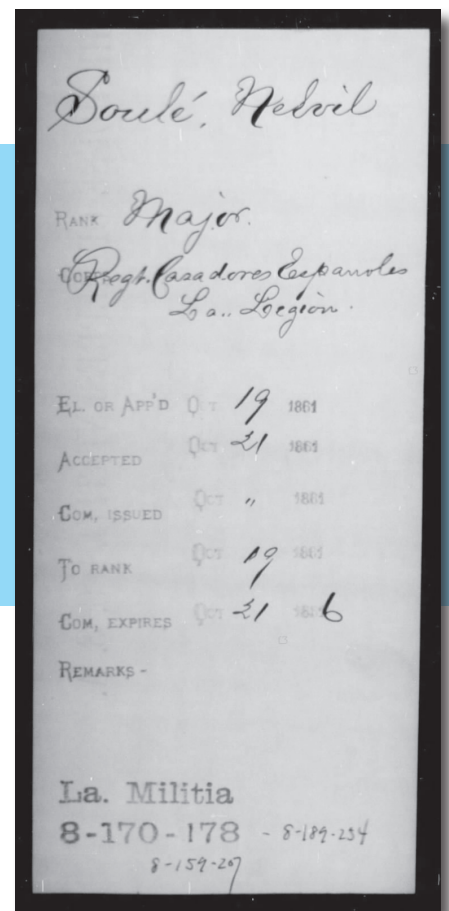 Soulé, Nelvil
RANK Major.
Regt. Casadores Espanoles
La.. Legion.
EL. OR APP'D OCT 19 1861
ACCEPTED OCT 21 1861
COM, ISSUED OCT " 1861
TO RANK OCT 19 1861
COM, EXPIRES OCT 21 186 6
REMARKS -
La. Militia
8-170-178 - 8-189-234
8-159-207